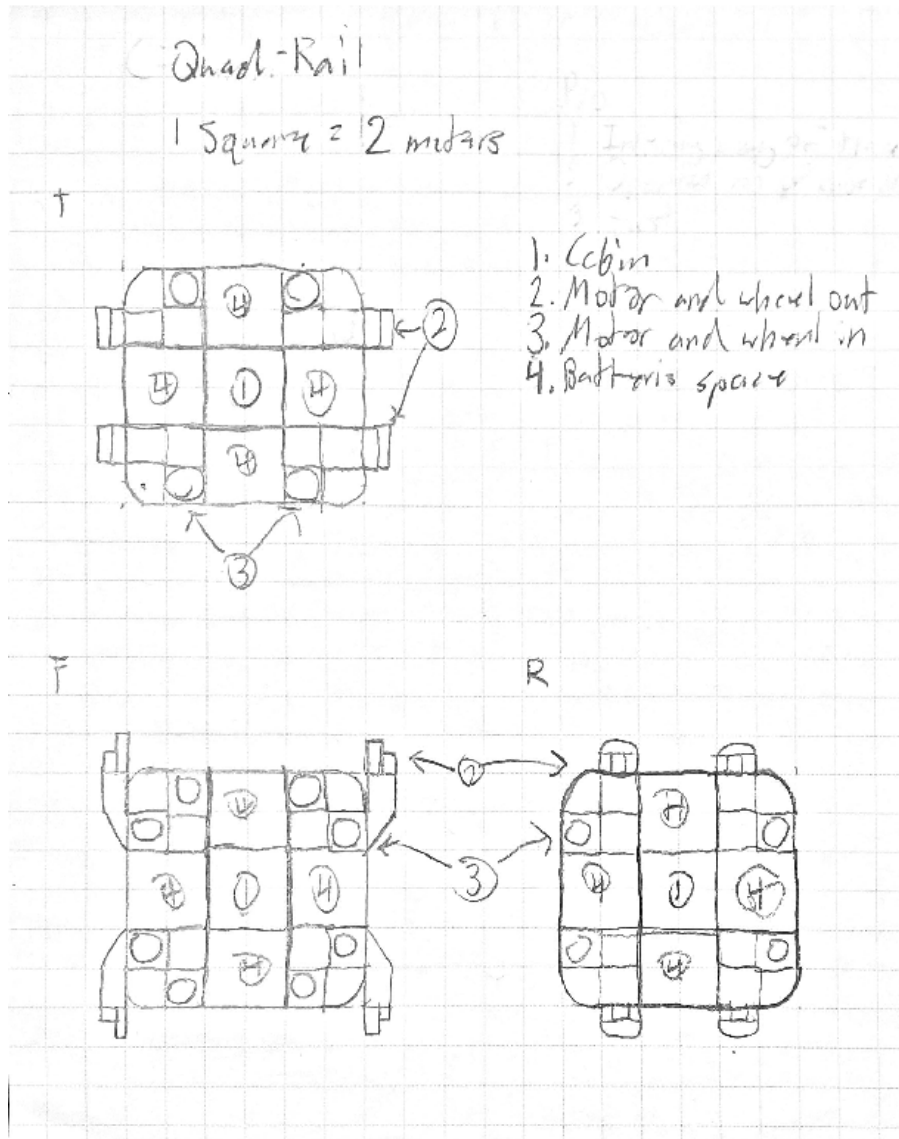 Quad-Rail
1 Square = 2 meters
T
1. Cabin
2. Motor and wheel out
3. Motor and wheel in
4. Batteris space
4
2
4 1 4
4
3
F R
2
4 4
3
4 1 4 4 1 4
4 4